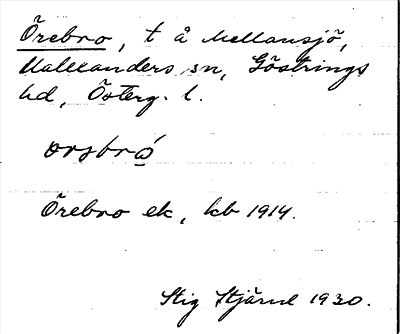 Örebro, t å Mellansjö,
Vallerstads sn, Göstrings
hd, Österg. l.
orsbro
Örebro ek, kb 1914.
Stig Stjärne 1930.